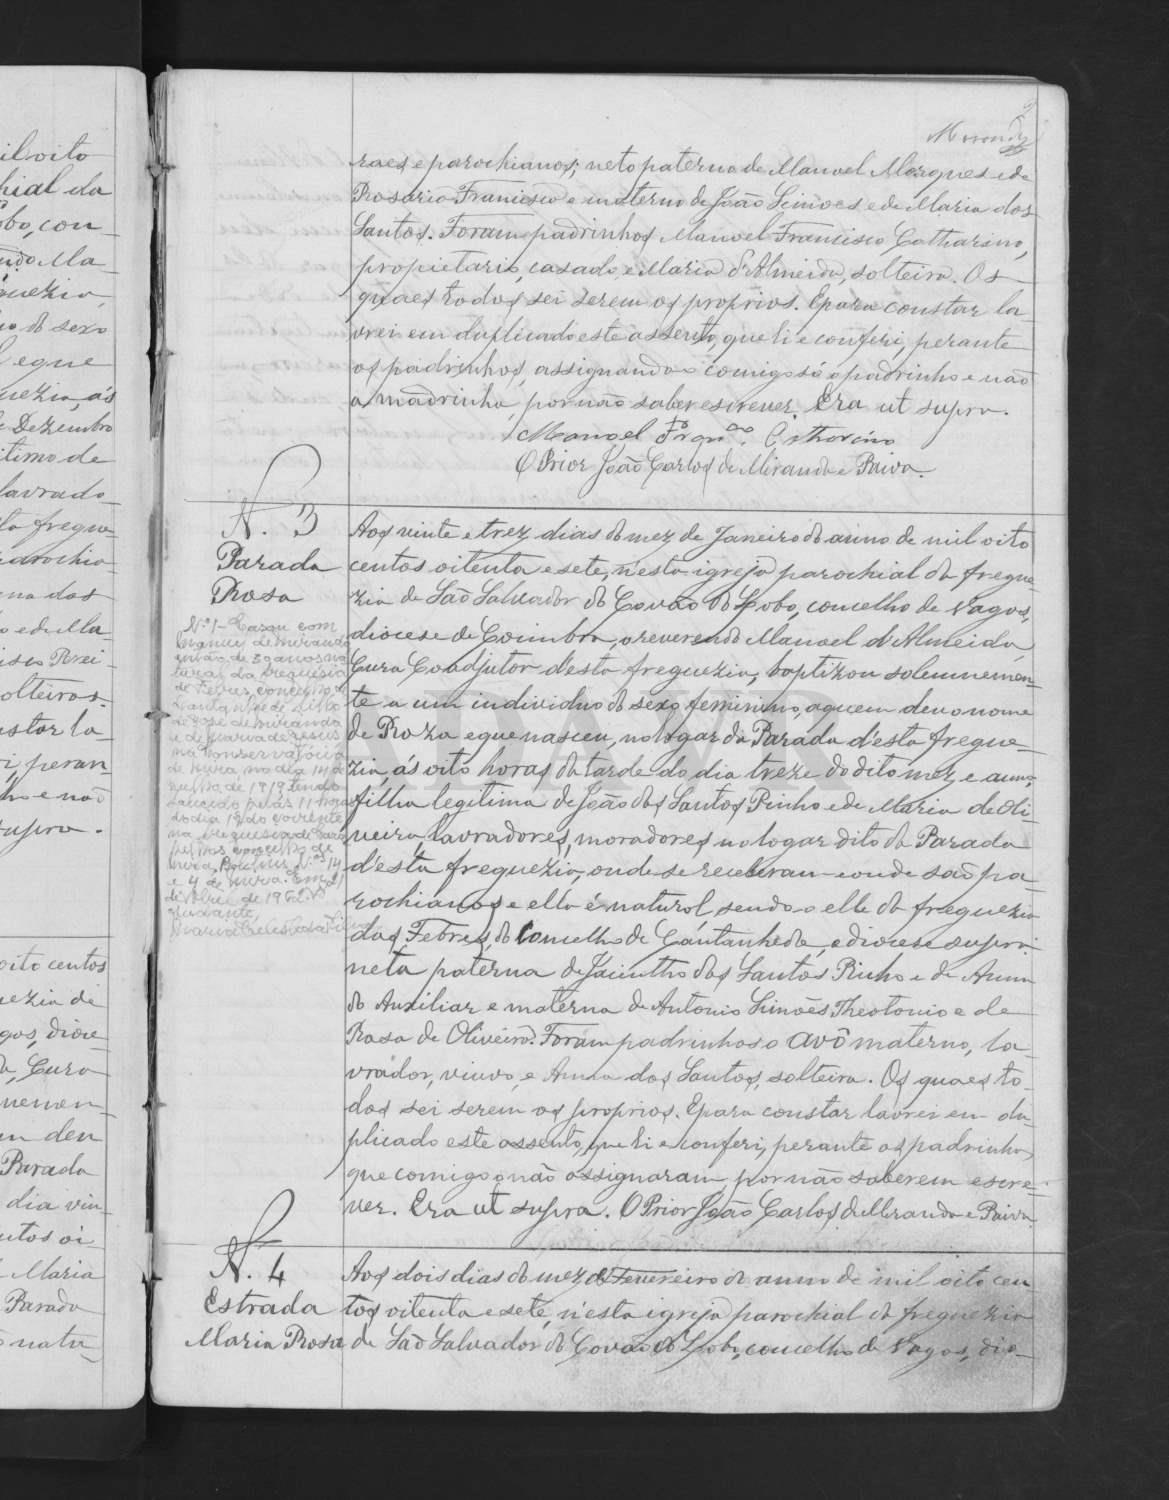 il oito
hial da
obo, con-
Ma-
uezia,
do sexo
e que
uezia, ás
Dezembro
itimo de
lavrado-
ta fregue-
parochia-
na dos
e de Ma-
Rei-
olteiros.
star la-
i, peran-
ho e não
supra.
oito centos
uezia de
gos, dioce-
Cura
nemen-
m deu
Parada
dia vin-
ntos oi-
Maria
Parada
natu-
Miranda
raes e parochianos; neto paterno de Manoel Marques e de
Rosaria Francisca e materno de João Simões e de Maria dos
Santos. Foram padrinhos Manoel Francisco Catharino,
propietario, casado, e Maria d'Almeida, solteira. Os
quaes todos sei serem os proprios. E para constar la-
vrei em duplicado este assento, que li e conferi, perante
os padrinhos, assignando comigo só o padrinho e não
a madrinha, por não saber escrever. Era ut supra.
Manoel Franco. Catharino
O Prior João Carlos de Miranda e Paiva.
N. 3
Parada
Rosa
N.º 1 - Casou com
Manuel de Miranda
então de 30 anos na-
tural da freguesia
de Febres, concelho de
Cantanhede filho
de José de Miranda
e de Maria de Jesus
na Conservatória
de Mira, no dia
de 1919 tendo
falecido pelas 11 horas
do dia 18 do corrente
na freguesia de
concelho de
Mira. N.os 14
e 4 de Mira. Em 21
de 1962.
Ajudante,
Maria Celeste da Silva
Aos vinte e trez dias do mez de Janeiro do anno de mil oito
centos oitenta e sete, n'esta igreja parochial da fregue-
zia de São Salvador do Covão do Lobo, concelho de Vagos,
diocese de Coimbra, o reverendo Manoel d'Almeida,
Cura Coadjutor d'esta freguezia, baptizou solemnemen-
te a um individuo do sexo feminino, a quem deu o nome
de Roza e que nasceu, no logar da Parada d'esta fregue-
zia, ás oito horas da tarde do dia treze do dito mez e anno,
filha legitima de João dos Santos Pinho e de Maria de Oli-
veira, lavradores, moradores no logar dito da Parada
d'esta freguezia, onde se receberam e onde são pa-
rochianos e ella é natural, sendo-o elle da freguezia
das Febres, do Concelho de Cantanhede, e diocese supra:
neta paterna de Jacintho dos Santos Pinho e de Anna
do Auxiliar e materna de Antonio Simões Theotonio e de
Rosa de Oliveira. Foram padrinhos o avô materno, la-
vrador, viuvo, e Anna dos Santos, solteira. Os quaes to-
dos sei serem os proprios. E para constar lavrei em du-
plicado este assento, que li e conferi, perante os padrinhos,
que comigo não assignaram por não saberem escre-
ver. Era ut supra. O Prior João Carlos de Miranda e Paiva.
N. 4
Estrada
Maria Rosa
Aos dois dias do mez de Fevereiro do anno de mil oito cen-
tos oitenta e sete, n'esta igreja parochial da freguezia
de São Salvador do Covão do Lobo, concelho de Vagos, dio-
ADAVR